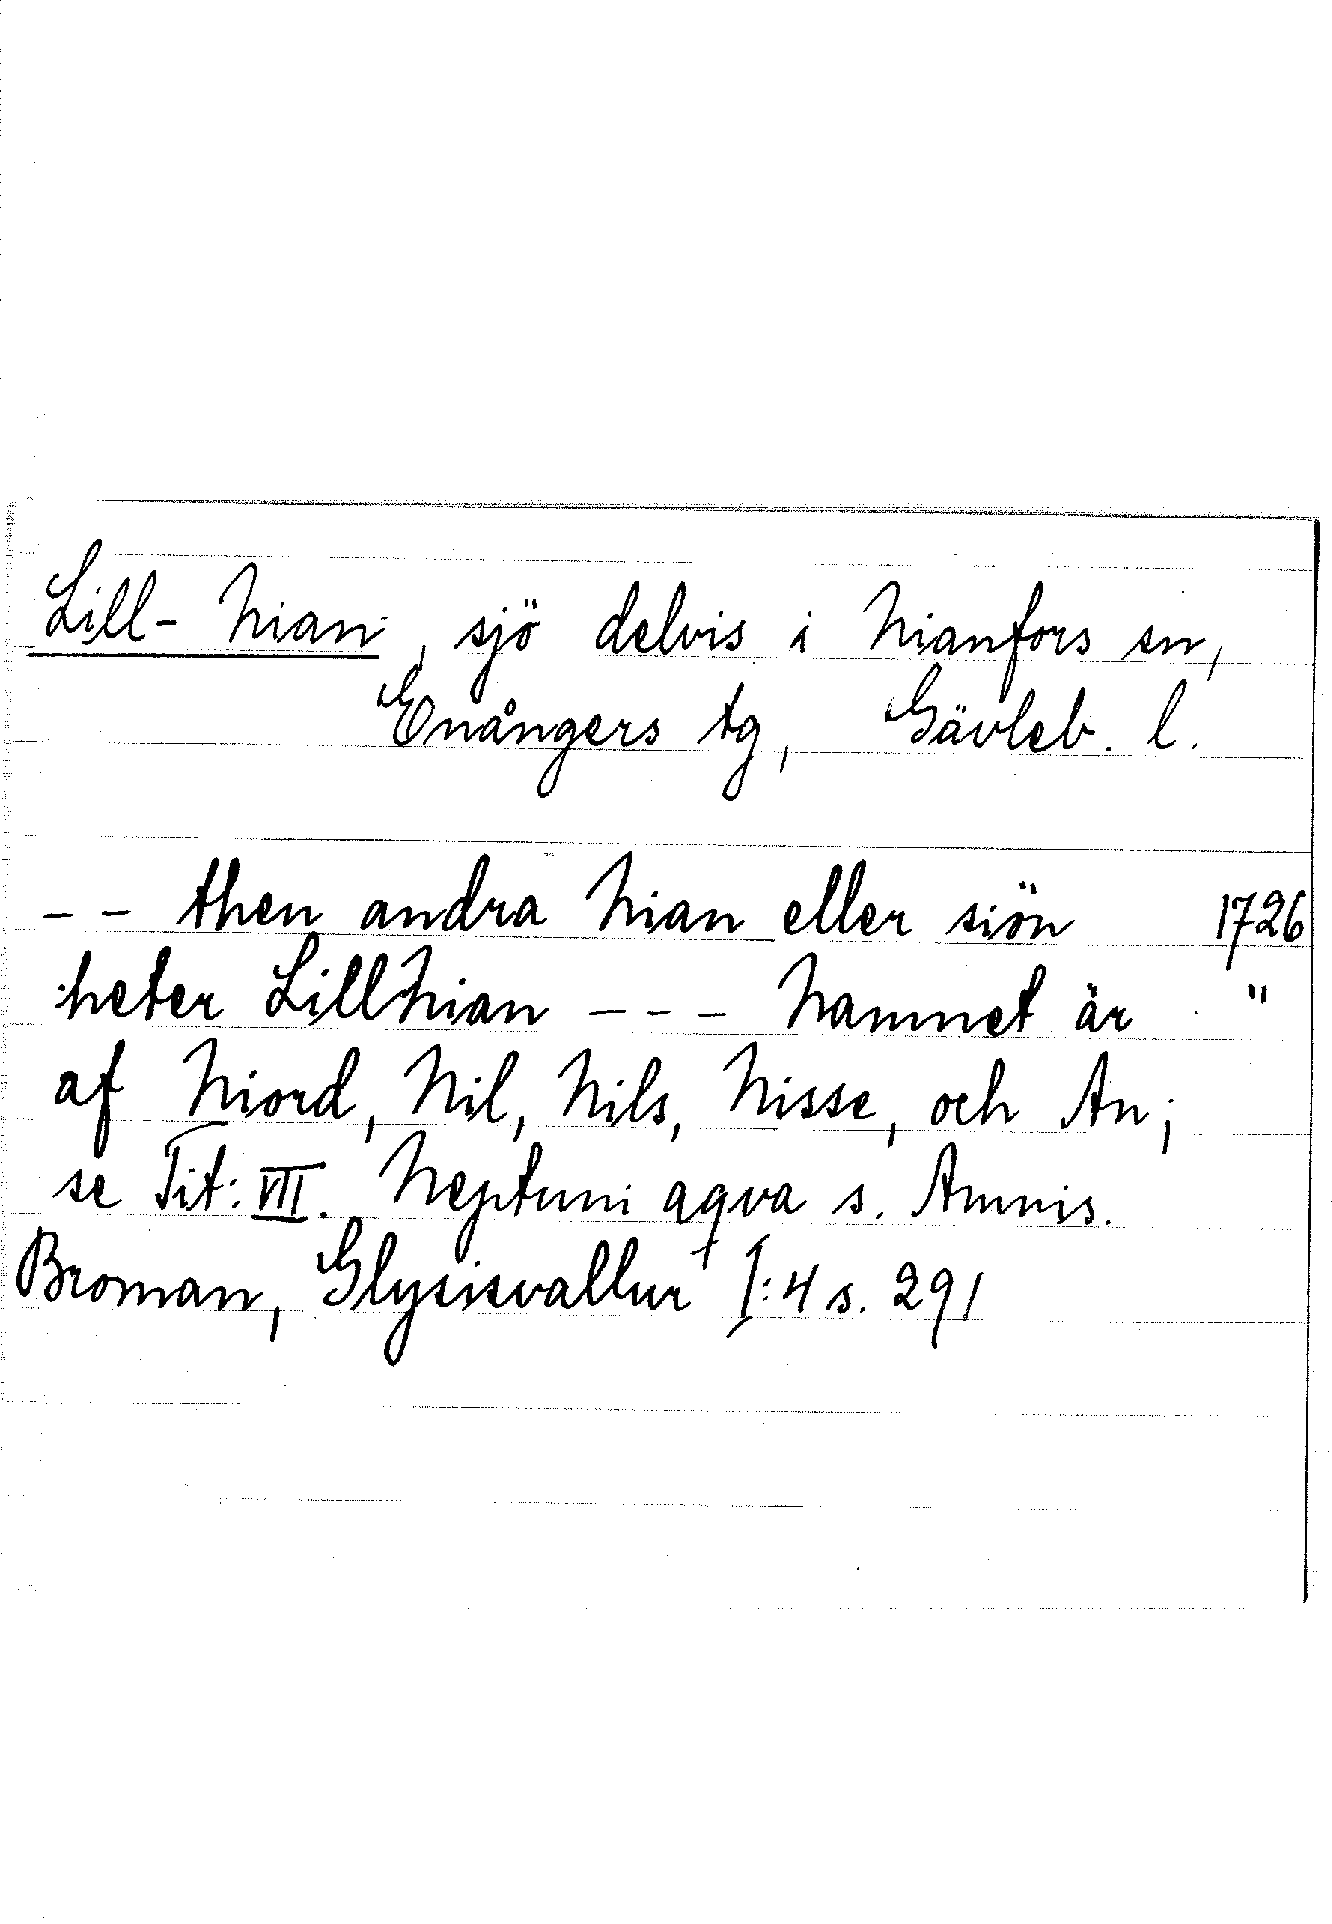 Lill-Nian, sjö delvis i Nianfors sn,
Enångers tg, Gävleb. l.
-- then andra Nian eller siön 1726
heter LillNian --- Namnet är "
af Niord, Nil, Nils, Nisse, och An;
se Tit: VIII. Neptuni aqva s. Amnis.
Broman, Glysisvallur I:4 s. 291